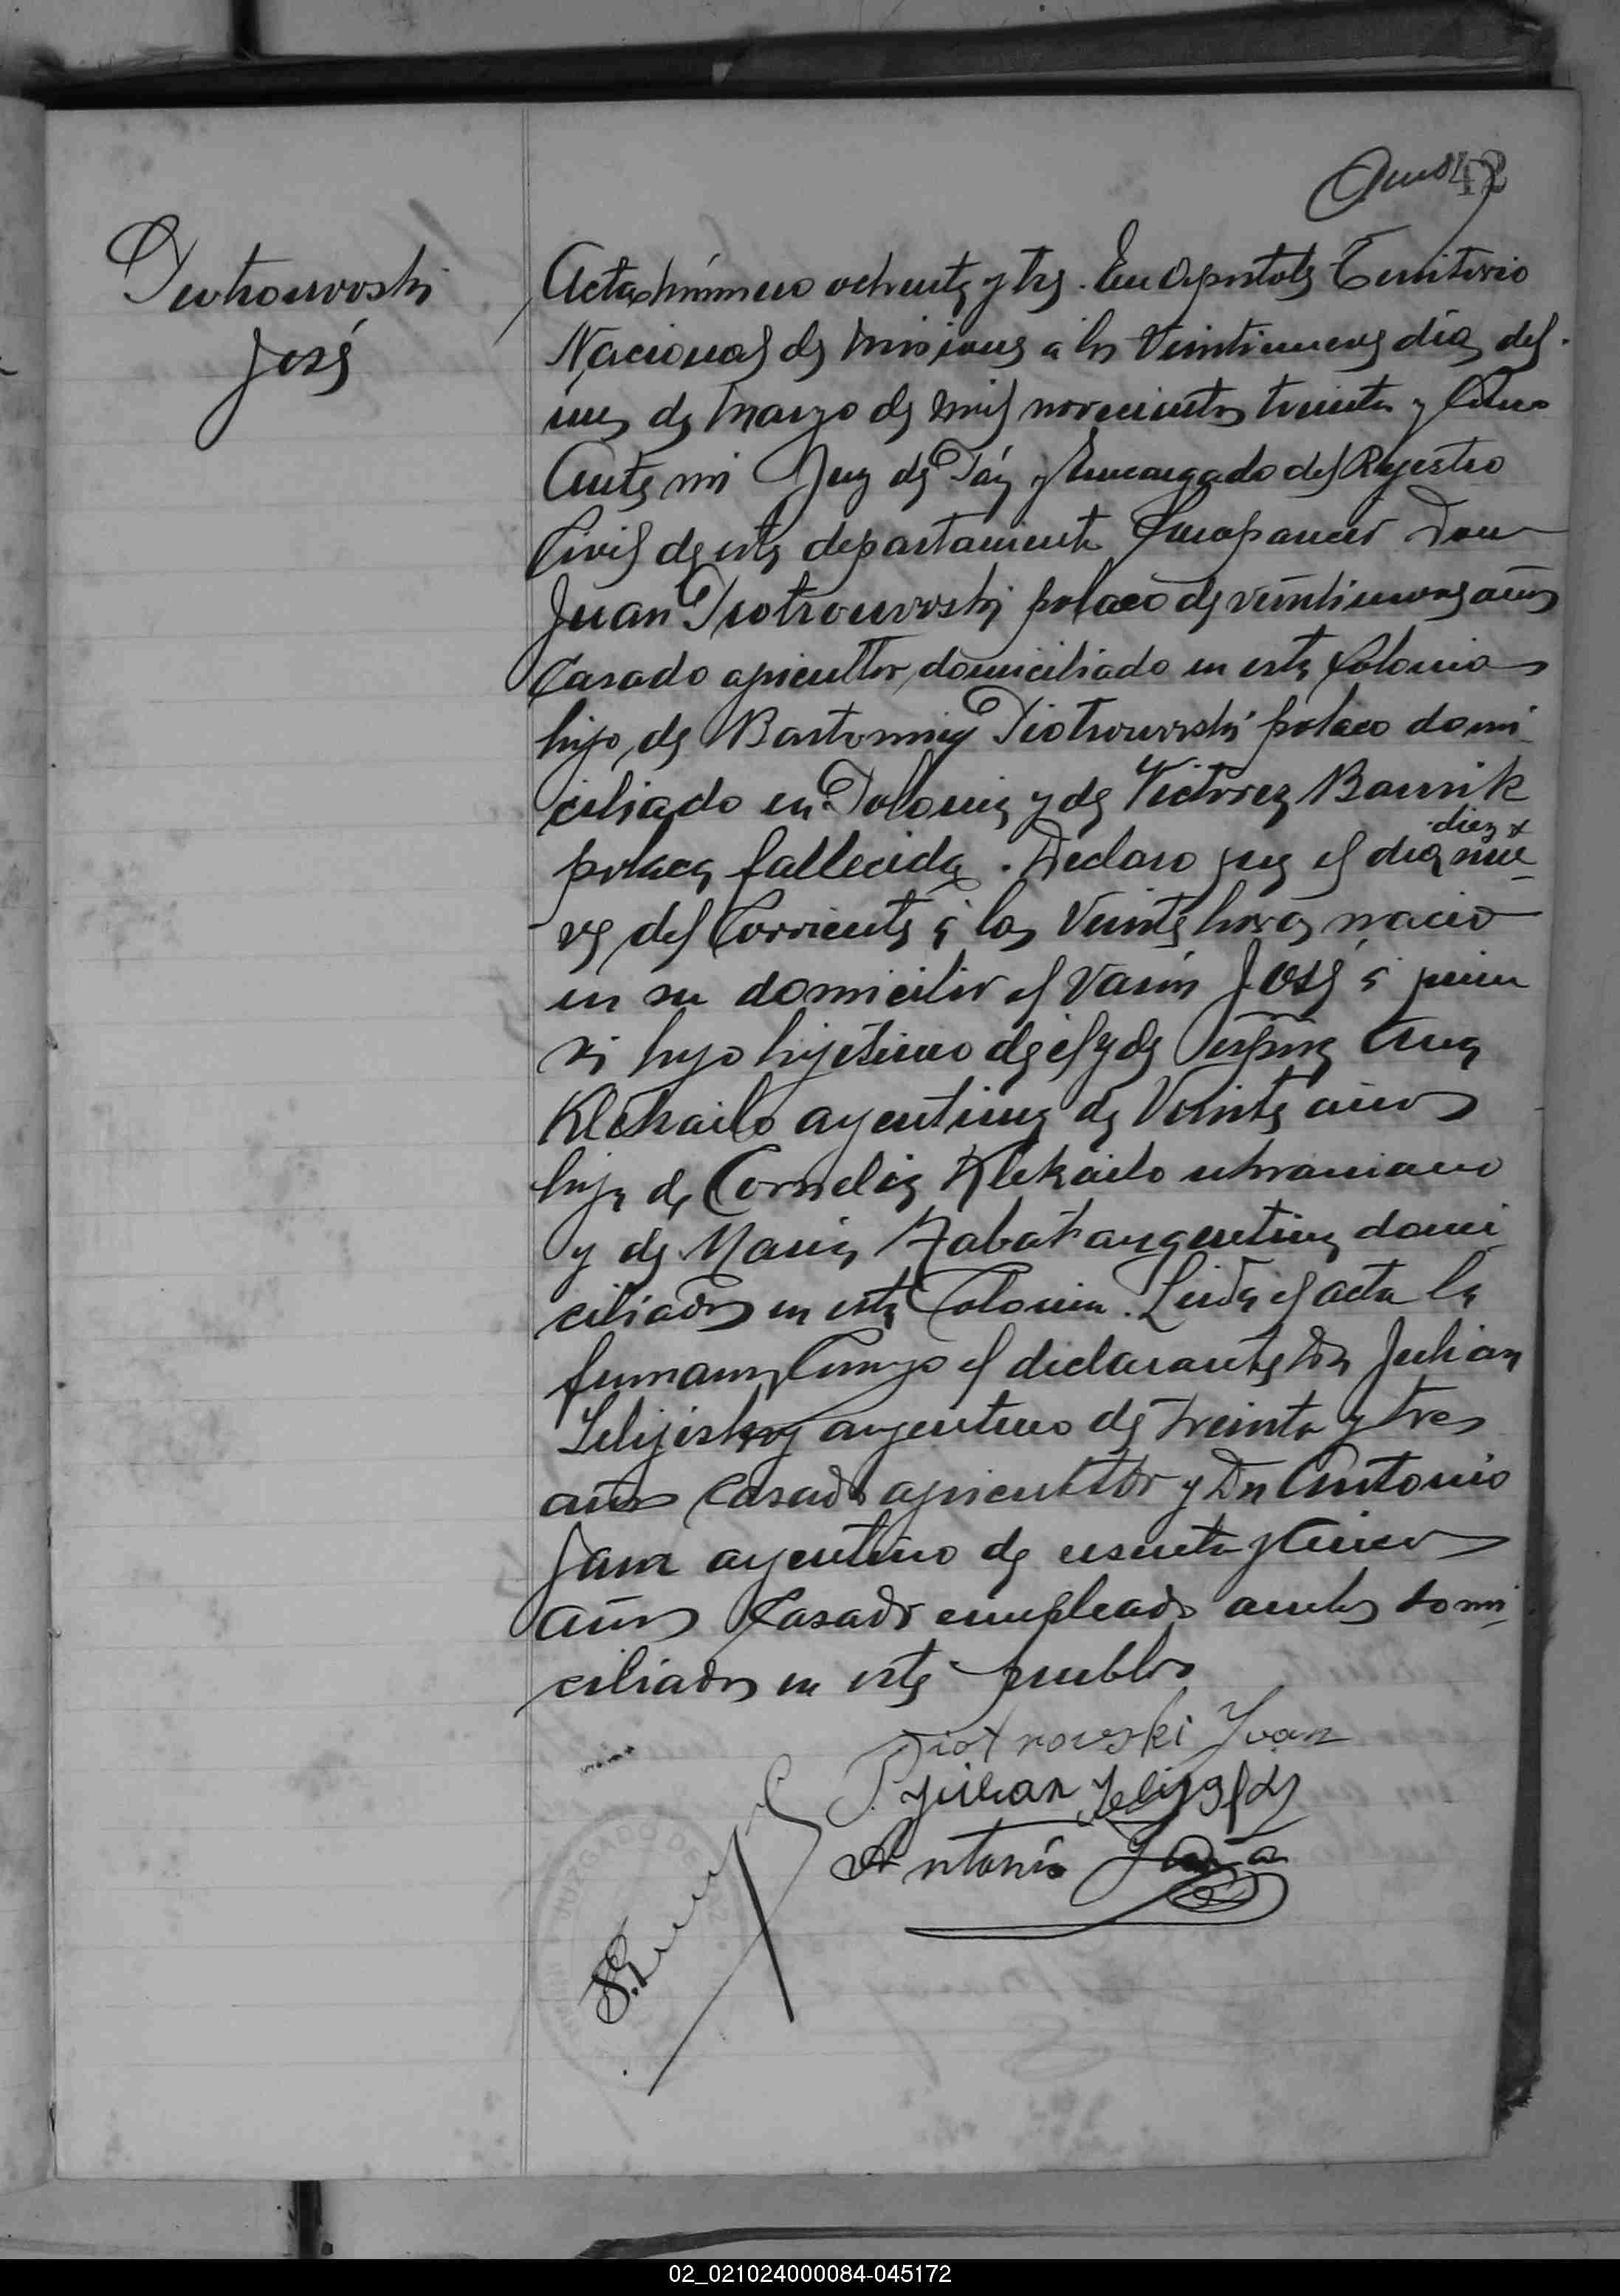 42
Piotrowvski
José
Acta número ochenta y tres. En Apostoles Territorio
Nacional de Misiones a los Veintinueve días del
mes de Marzo de mil novecientos treinta y Cinco
Ante mi Juez de Paz y Encargado del Rejistro
Civil de este departamento Compareció Don
Juan Piotrowvski polaco de veintinueve años
Casado agricultor, domiciliado en esta Colonia
hijo de Bartomiej Piotrowvski polaco domi
ciliado en Polonia y de Victorez Barnik
polaca fallecida. Declaro que el día diez y nue
ve del Corriente á las Veinte horas nacio
en su domicilio el Varón José á quien
hijo lejitimo de el y de esposa Ana
Klekailo argentina de Veinte años
hija de Cornelio Klekailo ukraniano
y de Maria Zabat argentina domi
ciliados en esta Colonia. Leida el acta la
firmaron Conmigo el declarante Don Julian
Zelijisky argentino de treinta y tres
años Casado agricultor y Dn Antonio
Jara argentino de sesenta y Cinco
años Casado empleado ambos domi
ciliados en este pueblo
Piotrowski Yvan
Julian
Antonio Jara
JUZGADO DE PAZ
02_021024000084-045172